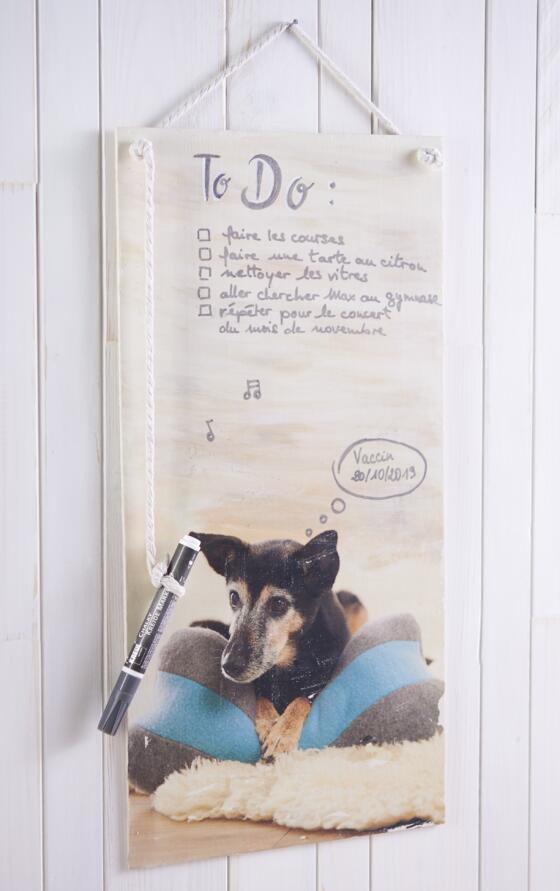 To Do :
faire les courses
faire une tarte au citron
nettoyer les vitres
aller chercher Max au gymnase
répéter pour le concert
du mois de novembre
Vaccin
20/10/2019
CHALKY
KREIDE MARKER